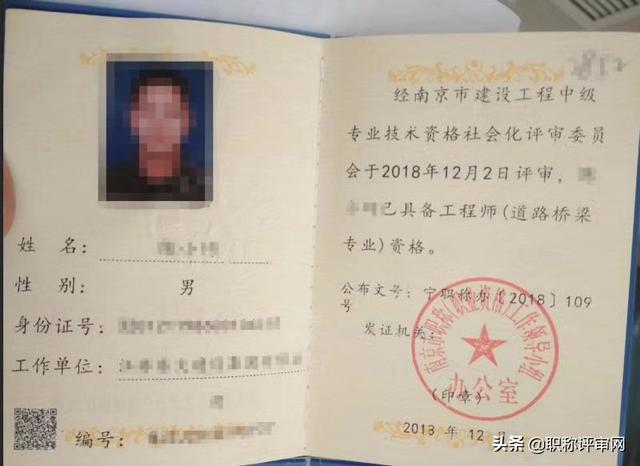 姓 名：
性 别： 男
身份证号：
工作单位：
编号：
经南京市建设工程中级
专业技术资格社会化评审委员
会于2018年12月2日评审，
已具备工程师(道路桥梁
专业)资格。
公布文号：宁职称办〔2018〕109
号
发证机关：
南京市职称(职业资格)工作领导小组
办公室
(印章)
2013 年 12 月
头条 @职称评审网